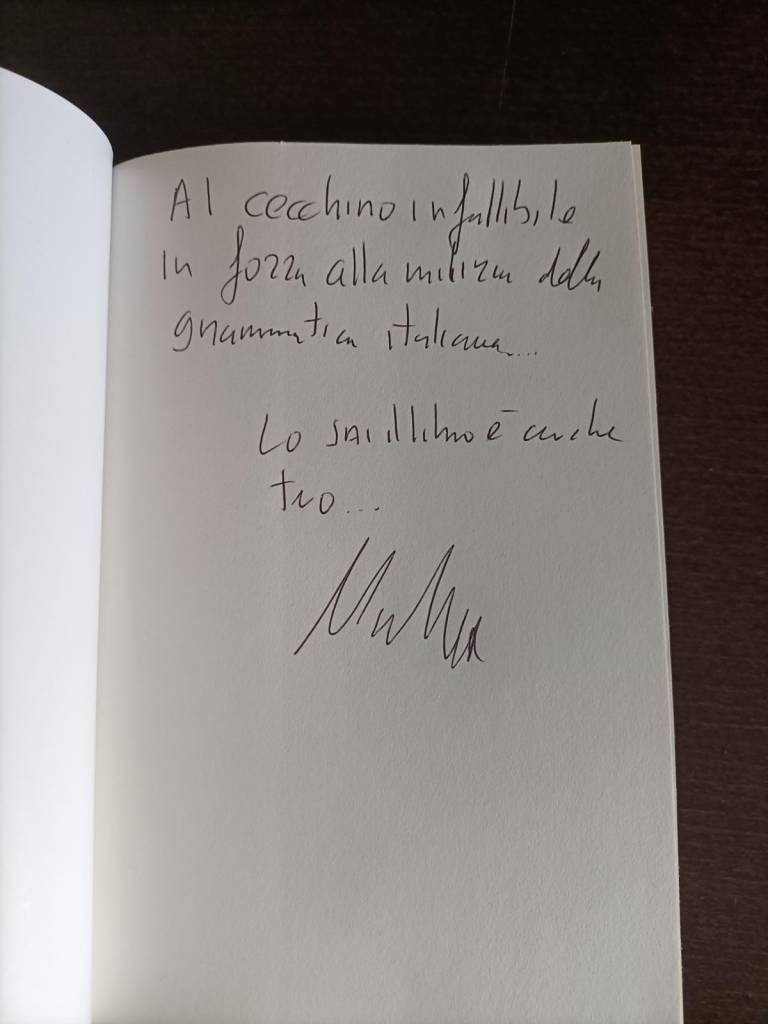 Al cecchino infallibile
in forza alla milizia della
grammatica italiana...
Lo è anche
tuo...